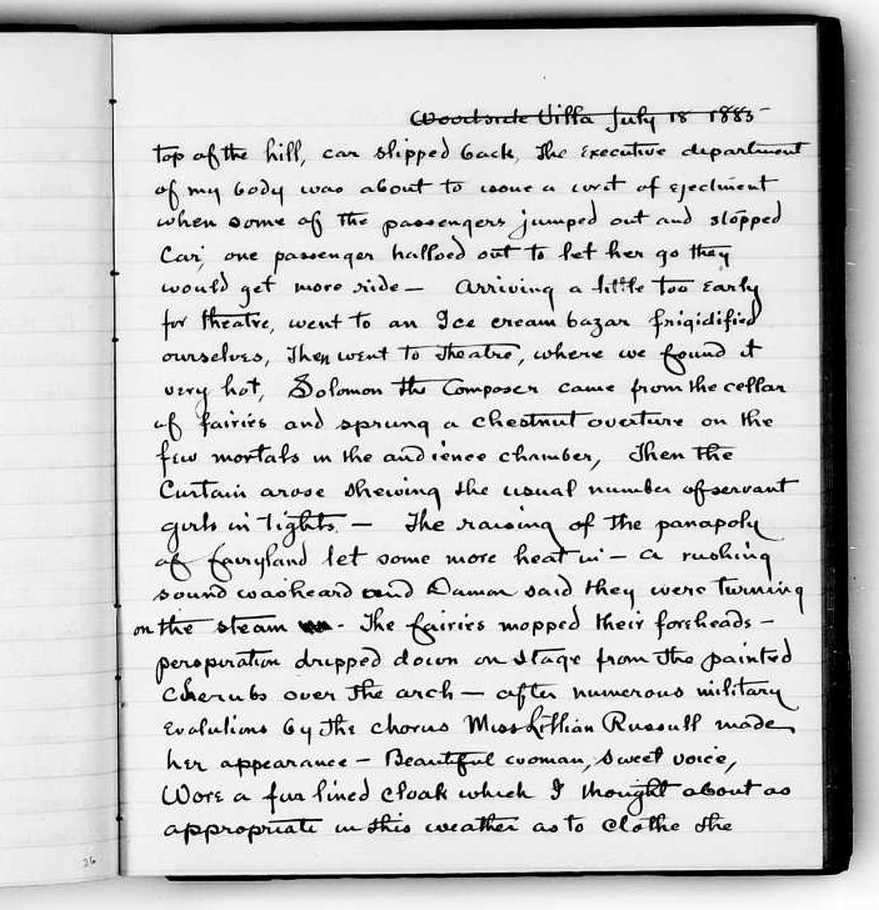 Woodside Villa July 18 1885
top of the hill, car slipped back, The Executive department
of my body was about to issue a writ of ejectment
when some of the passengers jumped out and stopped
Car, one passenger halloed out to let her go they
would get more ride — Arriving a little too Early
for theatre, went to an Ice cream bazar frigidified
ourselves, Then went to Theatre, where we found it
very hot, Solomon the Composer came from the cellar
of fairies and sprung a chestnut overture on the
few mortals in the audience chamber, Then the
Curtain arose shewing the usual number of servant
girls in tights — The raising of the panapoly
of fairyland let some more heat in — a rushing
sound was heard and Damon said they were turning
on the steam - The fairies mopped their foreheads —
perspiration dripped down on stage from the painted
Cherubs over the arch — after numerous military
Evolutions by the chorus Miss Lillian Russull made
her appearance — Beautiful woman, sweet voice,
Wore a fur lined cloak which I thought about as
appropriate in this weather as to clothe the
26